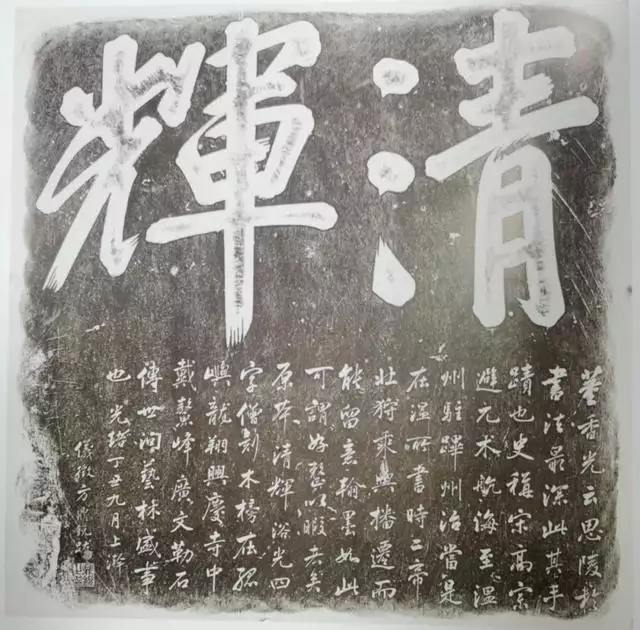 清輝
董香光云思陵於
書法最深此其手
蹟也史稱宋高宗
避元术航海至溫
州駐蹕州治當是
在溫所書時二帝
北狩乘輿播遷而
能留意翰墨如此
可謂好整以暇者矣
原本清輝浴光四
字僧刻木榜在孤
嶼龍翔興慶寺中
戴鰲峰廣文勒石
傳世洵藝林盛事
也光緒丁丑九月上澣
儀徵方銳